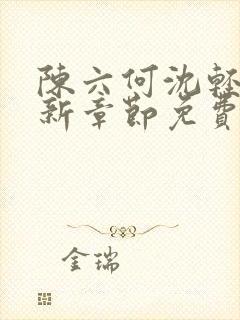 陳六何沈輕
新章節免費
金瑞